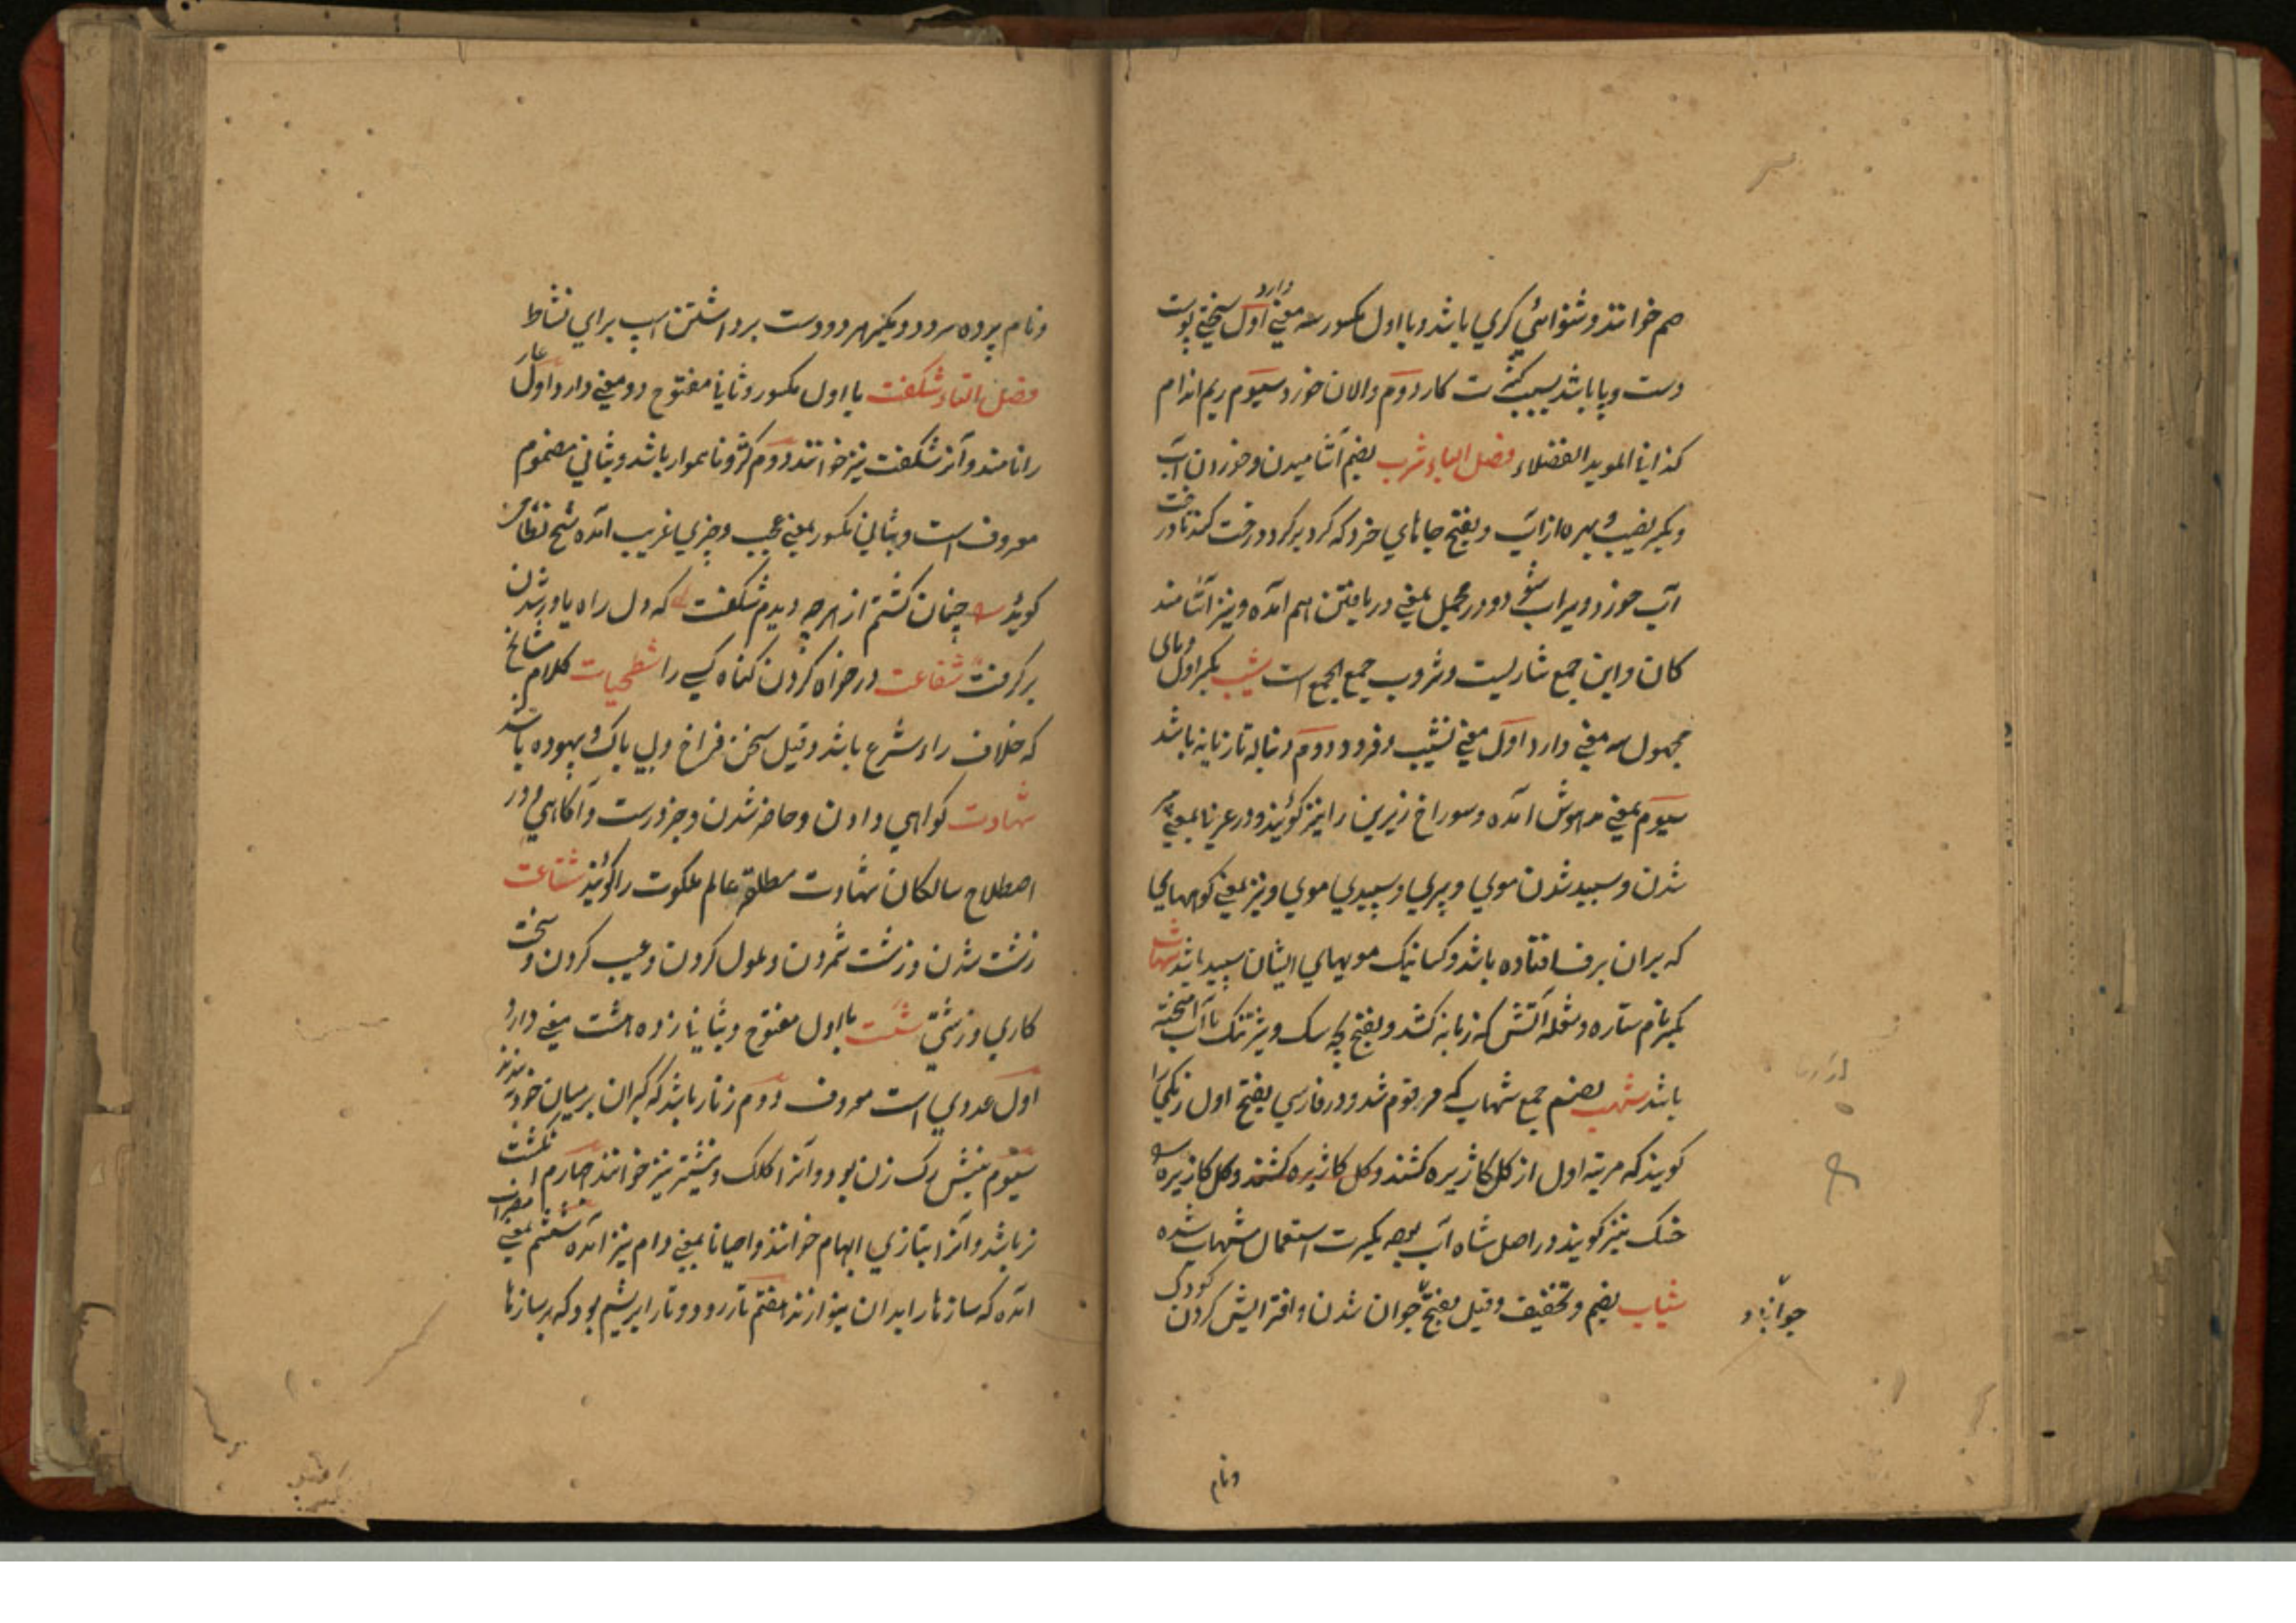 صم خوانند و شنوائی کری باشد و با اول مکسور سه معنی دارد اول سختی پوست
دست و پا باشد بسبب کثرت کار دوم والان خورد سیوم ریم اندام
کذا فی المؤید الفضلاء فصل الباء شرب بضم آشامیدن و خوردن آب
و بکسر نصیب و بهره از آب و بفتح جاهای خرد که گرد بر گرد درخت کنند تا درخت
آب خورد و سیراب شود و در مجمل بمعنی دریافتن هم آمده و نیز آشامند
کان و این جمع شاربست و شروب جمع الجمع است شیب بکسر اول و یای
مجهول سه معنی دارد اول معنی نشیب و فرود دوم دنباله تازیانه باشد
سیوم بمعنی مدهوش آمده و سوراخ زیرین را نیز گویند و در عربی بمعنی پیر
شدن و سپید شدن موی و پیری و سپیدی موی و نیز بمعنی کوههایی
که بران برف افتاده باشد و کسانیک مویهای ایشان سپید باشد شهاب
بکسر نام ستاره و شعله آتش که زبانه کشد و بفتح بچه سک و شیر تنک با آب آمیخته
باشد شهب بضم جمع شهاب که مرقوم شد و در فارسی بفتح اول رنکی را
گویند که مرتبه اول از کل کاژیره کشند و کل کاژیره کشند و کل کاژیره
خنک نیز گویند در اصل شاه آب بوده بکثرت استعمال شهاب شده
شباب بضم و تخفیف و قیل بفتح جوان شدن و افزایش کردن کودک
جوانان و
ونام
ونام پرده سرود و بکسر هر دو دست برداشتن اسب برای نشاط
فصل التاء شکفت با اول مکسور و ثانی مفتوح دو معنی دارد اول غار
را نامند و آنرا شکفت نیز خوانند دوم کژ و ناهموار باشد و بثانی مضموم
معروف است و بثانی مکسور بمعنی عجب و چیزی غریب آمده شیخ نظامی
گوید چنان کشتم از هرچه دیدم شکفت که دل راه یاور شدن
برگرفت شفاعت درخواه کردن کناه کسی را شطحیات کلام مشایخ
که خلاف راه شرع باشد و قیل سخن فراخ و بی باک و بیهوده باشد
شهادت گواهی دادن و حاضر شدن و خبر درست و آگاهی و در
اصطلاح سالکان شهادت مطلق عالم ملکوت را گویند شناعت
زشت شدن و زشت شمردن و ملول کردن و عیب کردن و سخت
کاری و زشتی شست با اول مفتوح و بثانی زده هشت معنی دارد
اول عددی است معروف دوم زنار باشد که گبران بر میان خود بندند
سیوم نیش رک زن بود و آنرا کلک و نیشتر نیز خوانند چهارم انکشت
نر باشد و آنرا بتازی ابهام خوانند و احیانا بمعنی دام نیز آمده ششم بمعنی مضراب
آمده که سازها را بدان بنوازند هفتم تار رود و تار ابریشم بود که بر سازها